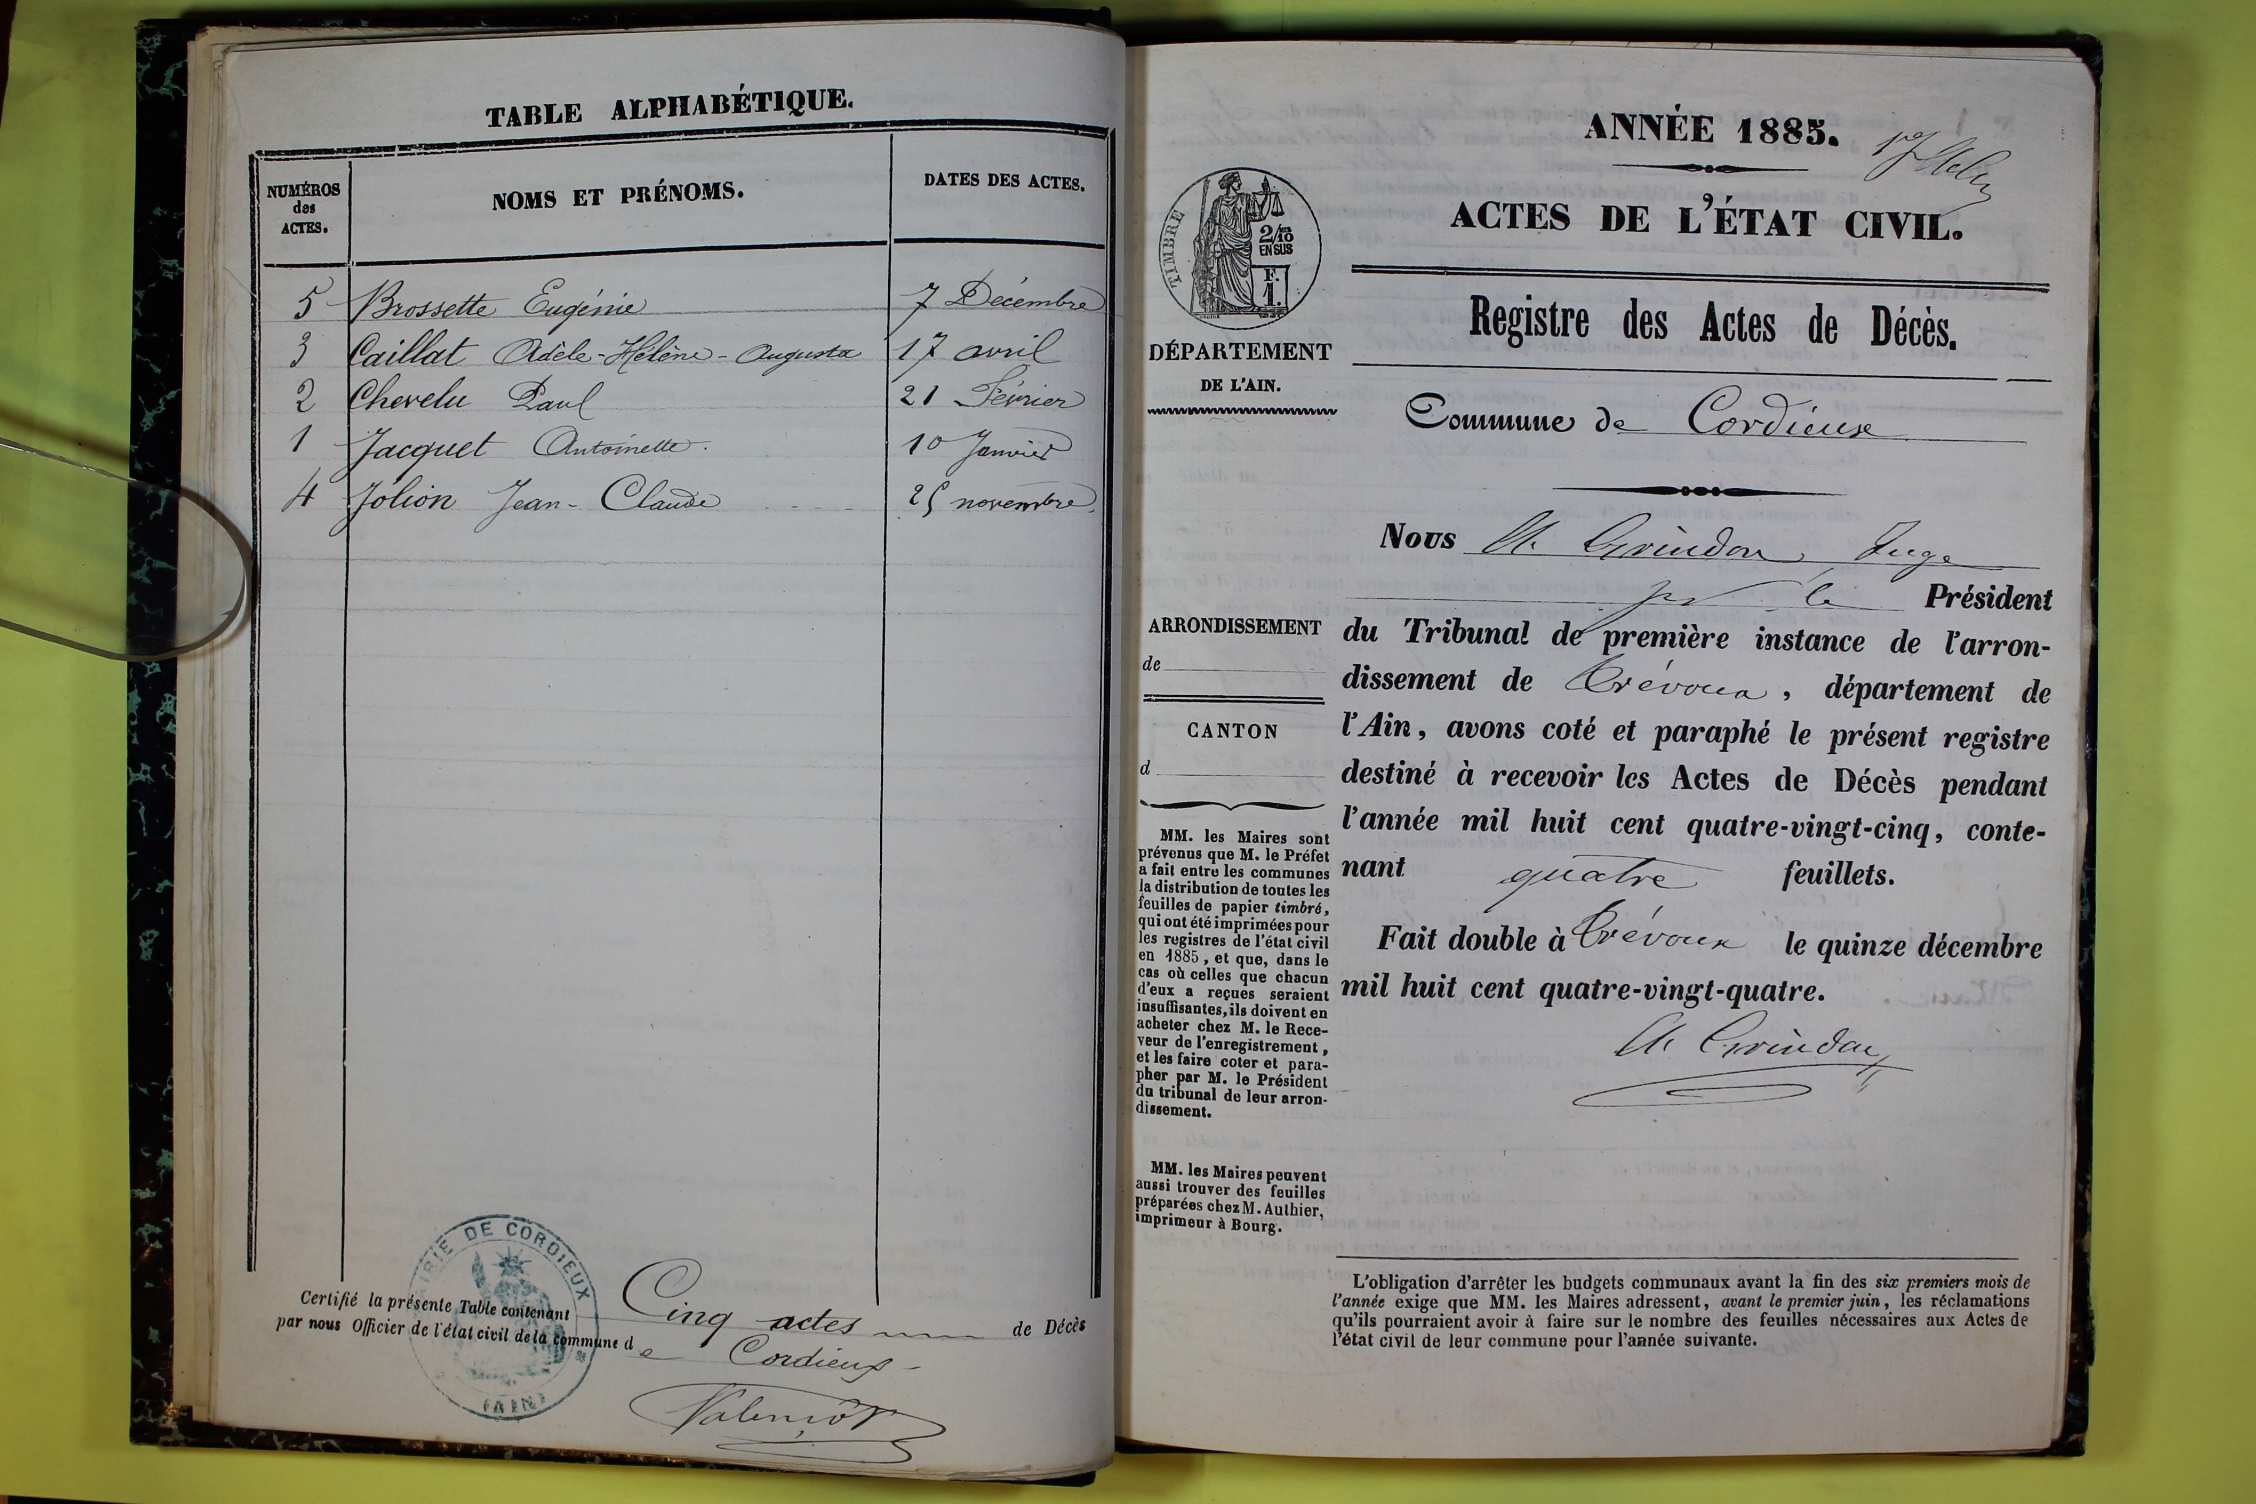 TABLE ALPHABÉTIQUE.
NUMÉROS des ACTES.
NOMS ET PRÉNOMS.
DATES DES ACTES.
5 Brossette Eugénie 7 Décembre
3 Caillat Adèle-Hélène-Augusta 17 avril
2 Chevelu Paul 21 Février
1 Jacquet Antoinette. 10 Janvier
4 Jolion Jean-Claude 25 novembre
Certifié la présente Table contenant Cinq actes de Décès
par nous Officier de l'état civil de la commune de Cordieux
MAIRIE DE CORDIEUX
(AIN)
ANNÉE 1885.
ACTES DE L'ÉTAT CIVIL.
TIMBRE
2/10 EN SUS
F. 1.
DÉPARTEMENT
DE L'AIN.
Registre des Actes de Décès.
Commune de Cordieux
Nous Grindon, Juge
pr le Président
du Tribunal de première instance de l'arron-
dissement de Trévoux, département de
l'Ain, avons coté et paraphé le présent registre
destiné à recevoir les Actes de Décès pendant
l'année mil huit cent quatre-vingt-cinq, conte-
nant quatre feuillets.
Fait double à Trévoux le quinze décembre
mil huit cent quatre-vingt-quatre.
Grindon
ARRONDISSEMENT
de
CANTON
d
MM. les Maires sont
prévenus que M. le Préfet
a fait entre les communes
la distribution de toutes les
feuilles de papier timbré,
qui ont été imprimées pour
les registres de l'état civil
en 1885, et que, dans le
cas où celles que chacun
d'eux a reçues seraient
insuffisantes, ils doivent en
acheter chez M. le Rece-
veur de l'enregistrement,
et les faire coter et para-
pher par M. le Président
du tribunal de leur arron-
dissement.
MM. les Maires peuvent
aussi trouver des feuilles
préparées chez M. Authier,
imprimeur à Bourg.
L'obligation d'arrêter les budgets communaux avant la fin des six premiers mois de
l'année exige que MM. les Maires adressent, avant le premier juin, les réclamations
qu'ils pourraient avoir à faire sur le nombre des feuilles nécessaires aux Actes de
l'état civil de leur commune pour l'année suivante.